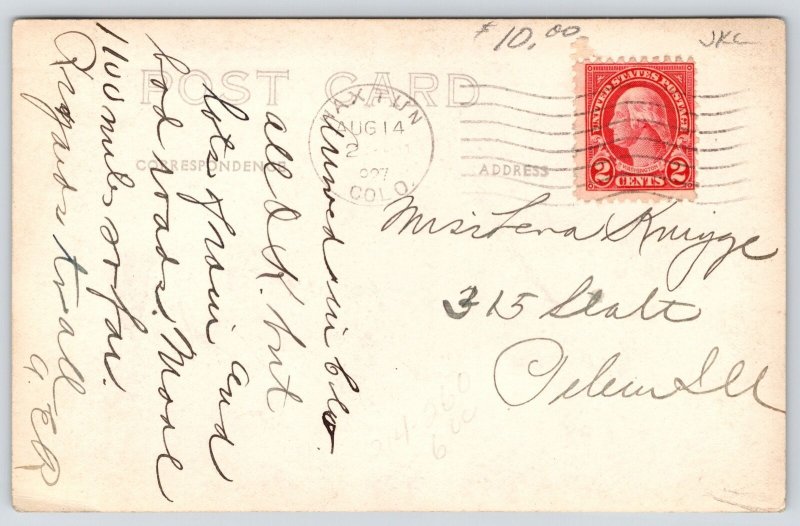 $10.00
JKC
POST CARD
CORRESPONDENCE
ADDRESS
HAXTUN
AUG 14
2
1927
COLO.
UNITED STATES POSTAGE
WASHINGTON
2 CENTS 2
Miss Lena Knigge
315 Statt
Pekin Ill
Arrived in Colo.
all O.K. but
lots of rain and
bad roads. Mone
1100 miles so far.
Regards to all